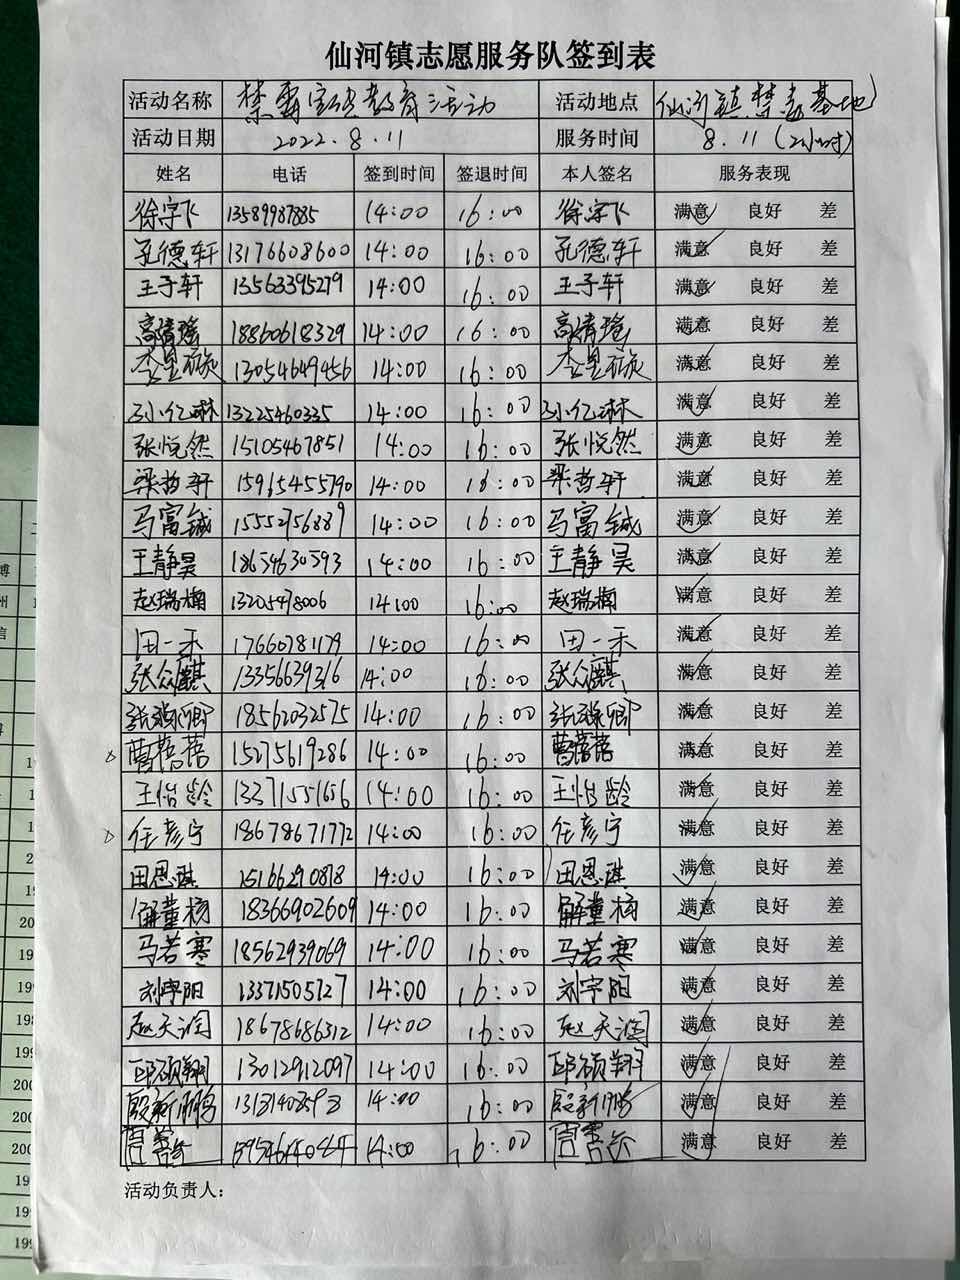 仙河镇志愿服务队签到表
活动名称 禁毒宣传教育活动 活动地点 仙河镇禁毒基地
活动日期 2022.8.11 服务时间 8.11(2小时)
姓名 电话 签到时间 签退时间 本人签名 服务表现
徐字飞 13589987885 14:00 16:00 徐字飞 满意 良好 差
孔德轩 13176608600 14:00 16:00 孔德轩 满意 良好 差
王子轩 13563395279 14:00 16:00 王子轩 满意 良好 差
高情瑶 18860618329 14:00 16:00 高情瑶 满意 良好 差
李昱璇 13054649456 14:00 16:00 李昱璇 满意 良好 差
孙亿琳 13225460335 14:00 16:00 孙亿琳 满意 良好 差
张悦然 15105467851 14:00 16:00 张悦然 满意 良好 差
梁哲轩 15965455790 14:00 16:00 梁哲轩 满意 良好 差
马富铖 15552756889 14:00 16:00 马富铖 满意 良好 差
王静昊 18654630593 14:00 16:00 王静昊 满意 良好 差
赵瑞楠 13205478006 14:00 16:00 赵瑞楠 满意 良好 差
田一禾 17660781179 14:00 16:00 田一禾 满意 良好 差
张众麒 13356639316 14:00 16:00 张众麒 满意 良好 差
18562032575 14:00 16:00 满意 良好 差
曹蓓蓓 15275619286 14:00 16:00 曹蓓蓓 满意 良好 差
王怡龄 13371551656 14:00 16:00 王怡龄 满意 良好 差
任彦宁 18678671772 14:00 16:00 任彦宁 满意 良好 差
田恩琪 15166290818 14:00 16:00 田恩琪 满意 良好 差
解董杨 18366902609 14:00 16:00 解董杨 满意 良好 差
马若寒 18562939069 14:00 16:00 马若寒 满意 良好 差
刘宇阳 13371505727 14:00 16:00 刘宇阳 满意 良好 差
赵天润 18678686312 14:00 16:00 赵天润 满意 良好 差
邱硕翔 13012912097 14:00 16:00 邱硕翔 满意 良好 差
殷新鹏 14:00 16:00 殷新鹏 满意 良好 差
14:00 16:00 满意 良好 差
活动负责人：